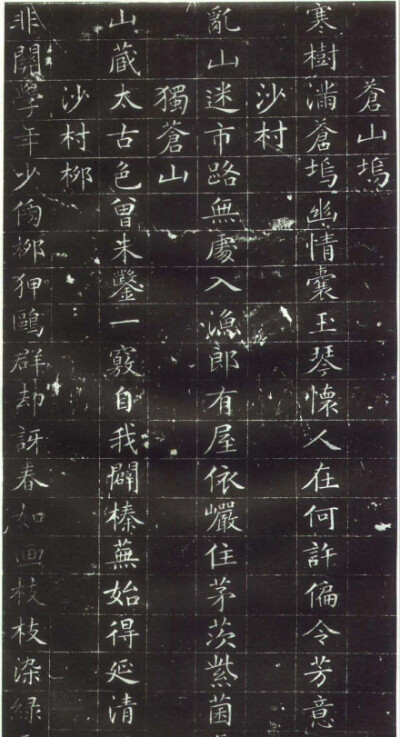 蒼山塢
寒樹滿蒼塢幽情囊玉琴懷人在何許偏令芳意
沙村
亂山迷市路無處入漁郎有屋依巖住茅茨紫菌
獨蒼山
山藏太古色曾未鑿一竅自我闢榛蕪始得延清
沙村柳
非關學年少傍柳狎鷗群却訝春如画枝枝染緑